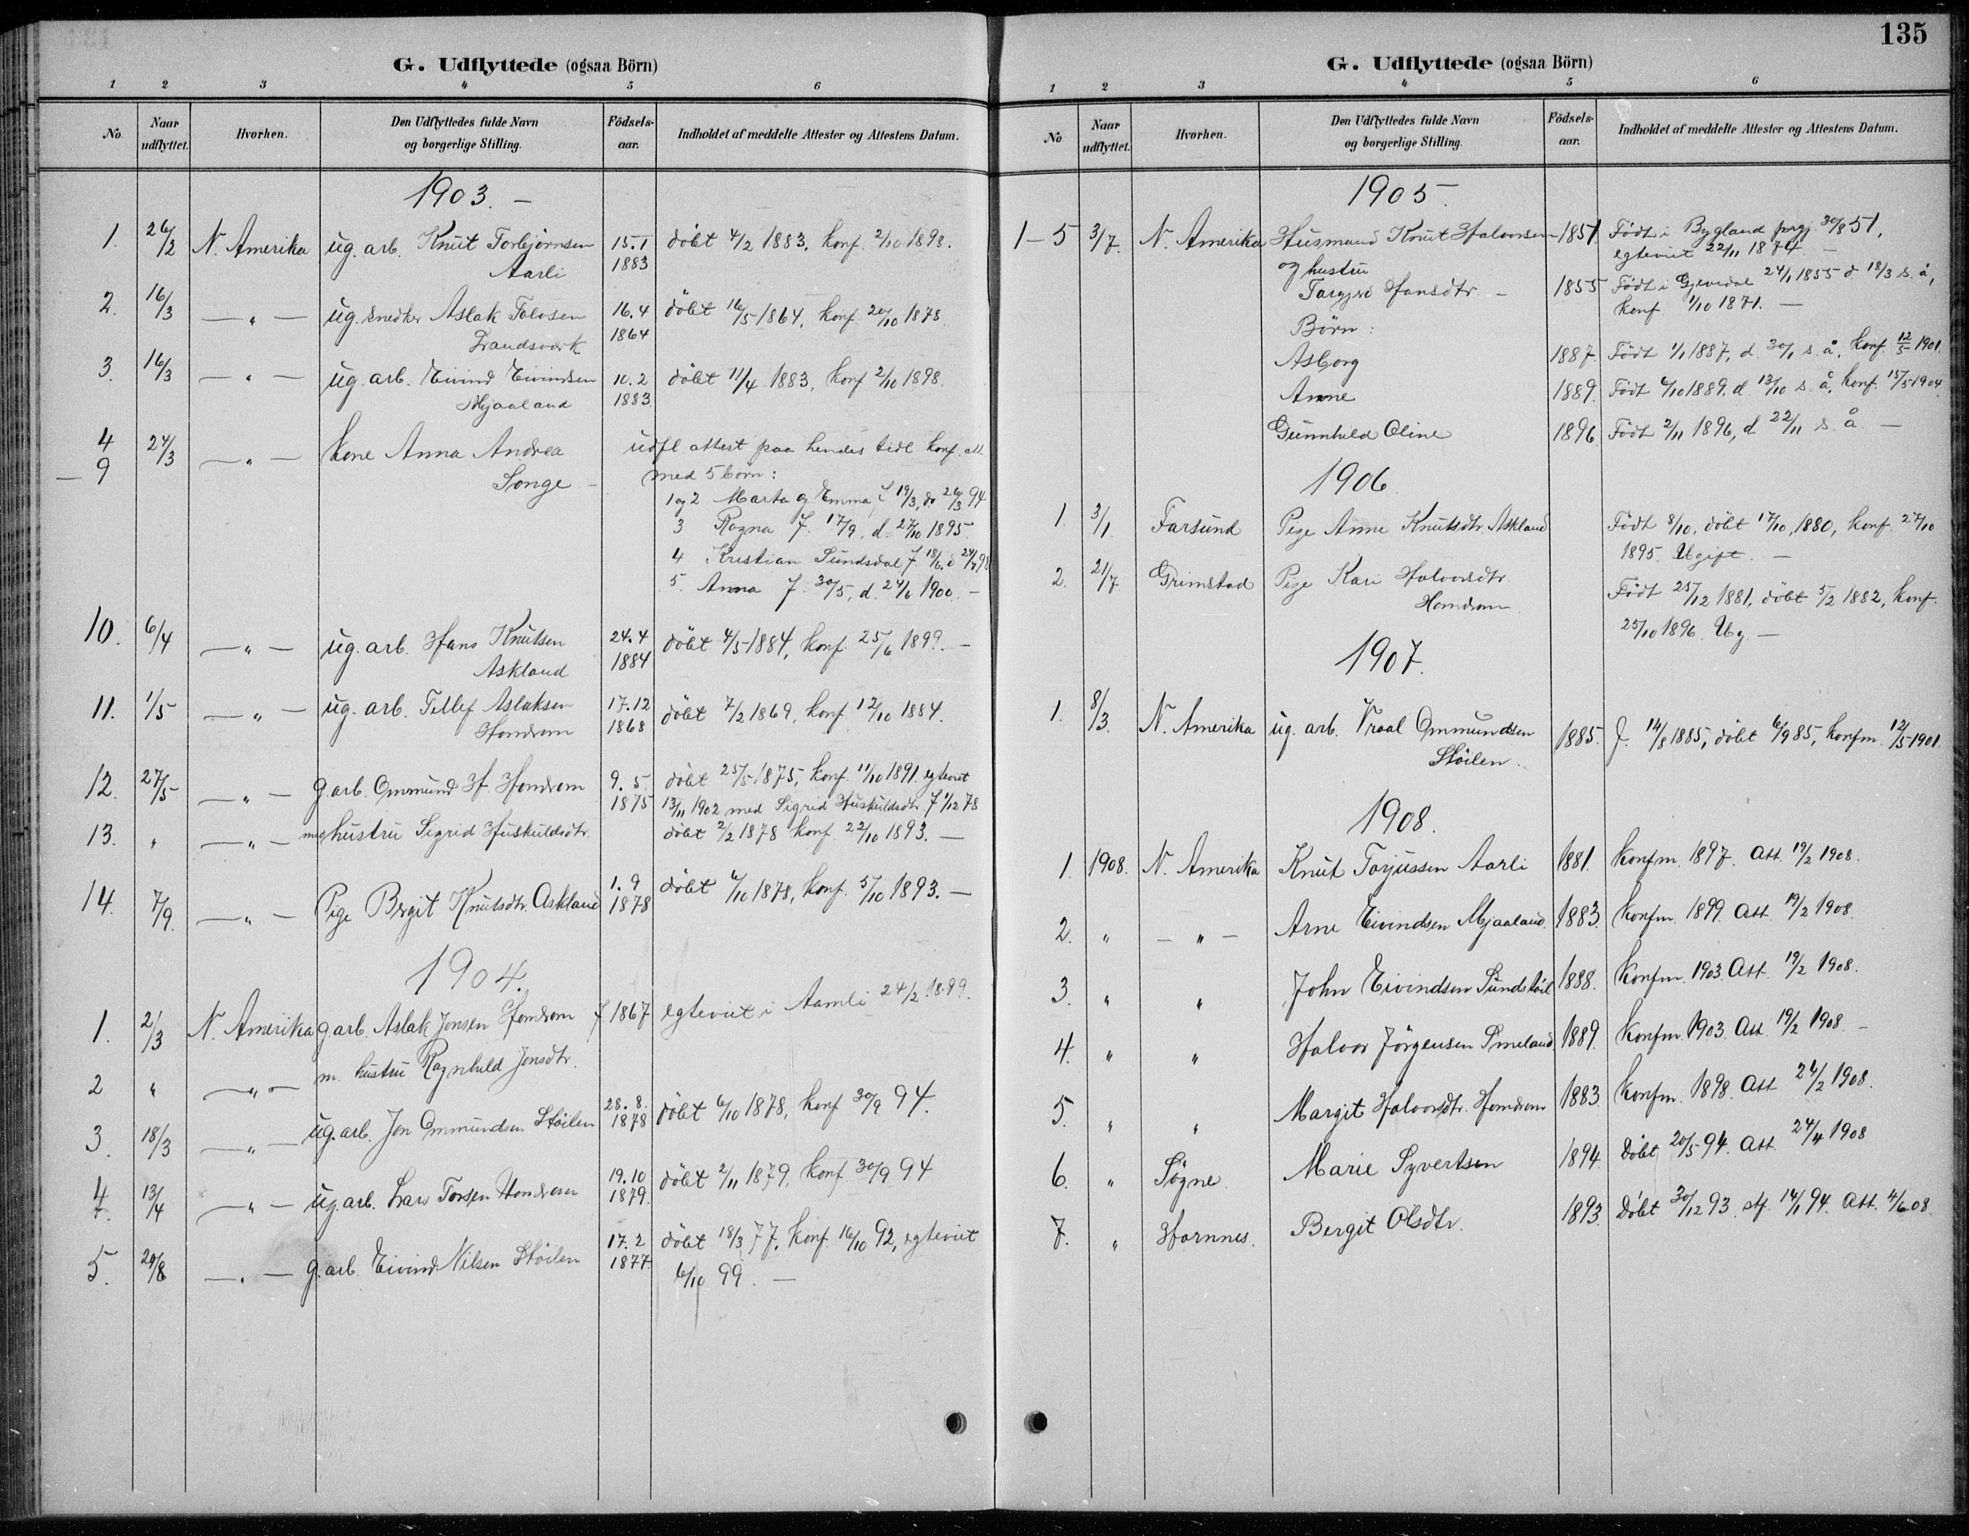 G. Udflyttede (ogsaa Börn)
1 2 3 4 5 6
No. Naar udflyttet. Hvorhen. Den Udflyttedes fulde Navn og borgerlige Stilling. Födsels-aar. Indholdet af meddelte Attester og Attestens Datum.
1903. —
1. 26/2 N. Amerika ug. arb. Knut Torbjørnsen 15.1 døbt 4/2 1883, konf. 2/10 1898.
Aarli 1883
2. 16/3 — " — ug. snedker Aslak Tolvsen 16.4 døbt 16/5 1864, konf. 20/10 1878.
1864
3. 16/3 — " — ug. arb. Eivind Eivindsen 10.2 døbt 11/4 1883, konf 2/10 1898.
Mjaaland 1883
4 24/3 — " — Kone Anna Andrea udfl attest paa hendes tidl konf. att.
— 9 Songe — med 5 børn:
1 og 2 Marta og Emma f 19/3, dø 26/3 94
3 Ragna f. 17/9, d. 27/10 1895.
4 Kristian Sundsdal f 18/6, d 24/7 98
5. Anna f. 30/5, d. 24/6 1900. —
10. 6/4 — " — ug. arb. Hans Knutsen 24.4 døbt 4/5 1884, konf 25/6 1899. —
Askland 1884
11. 1/5 — " — ug. arb. Tellef Aslaksen 17.12 døbt 7/2 1869, konf. 12/10 1884.
Homdrom 1868
12. 27/5 — " — g. arb. Ommund H. Homdrom 9. 5. døbt 25/5 1875, konf. 11/10 1891. egteviet
1875 13/11 1902 med Sigrid Huskuldsdtr. f 1/12 78
13. " — " — m hustru Sigrid Huskuldsdtr. døbt 2/2 1878 konf 22/10 1893. —
14. 7/9. — " — Pige Bergit Knutsdtr. Askland 1. 9 1878 døbt 6/10 1878, konf. 5/10 1893. —
1904.
1. 2/3 N. Amerika g. arb. Aslak Jonsen Homdrom f. 1867 egteviet i Aamli 24/2 1899.
2 " — " — m. hustru Ragnhild Jonsdtr.
3. 18/3 — " — ug. arb. Jon Ommundsen Støilen 28. 8. 1878 døbt 6/10 1878, konf 30/9 94.
4 13/4 — " — ug. arb. Lars Torsen Homdrom 19.10 1879. døbt 2/11 1879, konf 30/9 94
5. 20/8 — " — g. arb. Eivind Nilsen Støilen 17. 2 1877 døbt 18/3 77, konf. 16/10 92, egteviet
6/10 99. —
135
G. Udflyttede (ogsaa Börn)
1 2 3 4 5 6
No Naar udflyttet. Hvorhen. Den Udflyttedes fulde Navn og borgerlige Stilling. Födsels-aar. Indholdet af meddelte Attester og Attestens Datum.
1905.
1 – 5 3/7. N. Amerika Husmand Knut Halvorsen 1851. Født i Bygland prgj. 30/8 51,
egteviet 22/11 1874 —
og hustru
Targjerd Hansdtr. — 1855 Født i Gjevedal 24/1 1855 d 18/3 s. å,
konf 1/10 1871. —
Børn:
Asborg 1887. Født 1/1 1887, d. 30/1 s. å, konf. 12/5 1901.
Anne 1889. Født 6/10 1889, d 13/10 s. å, konf. 15/5 1904.
Gunnhild Oline 1896 Født 2/11 1896, d 22/11 s. å. —
1906
1. 3/1 Farsund Pige Anne Knutsdtr. Askland Født 8/10, døbt 17/10, 1880, konf. 27/10
1895. Ugift. —
2. 21/7 Grimstad Pige Kari Halvorsdtr. Født 25/12 1881, døbt 5/2 1882, konf.
Homdrom 25/10 1896. Ug. —
1907.
1. 8/3. N. Amerika ug. arb. Vraal Ommundsen 1885. f. 14/8 1885, døbt 6/9 85, konfm. 12/5 1901.
Støilen.
1908.
1. 1908. N. Amerika Knut Torjussen Aarli 1881. Konfm. 1897. Att. 19/2 1908.
2. " — " — Arne Eivindsen Mjaaland. 1883. Konfm. 1899. Att. 19/2 1908.
3. " " John Eivindsen Sundstøil 1888. Konfm. 1903 Att. 19/2 1908.
4. " " Halvor Jørgensen Smeland 1889. Konfm. 1903. Att. 19/2 1908. —
5. " " Margit Halvorsdtr. Homdrom 1883. Konfm. 1898. Att 26/2 1908.
6. " Søgne. Marie Syvertsen 1894 Døbt 20/5 94. Att. 24/4 1908
7. " Hornnes. Bergit Olsdtr. 1893. Døbt 30/12 93. stf. 14/1 94. Att. 4/6 08.